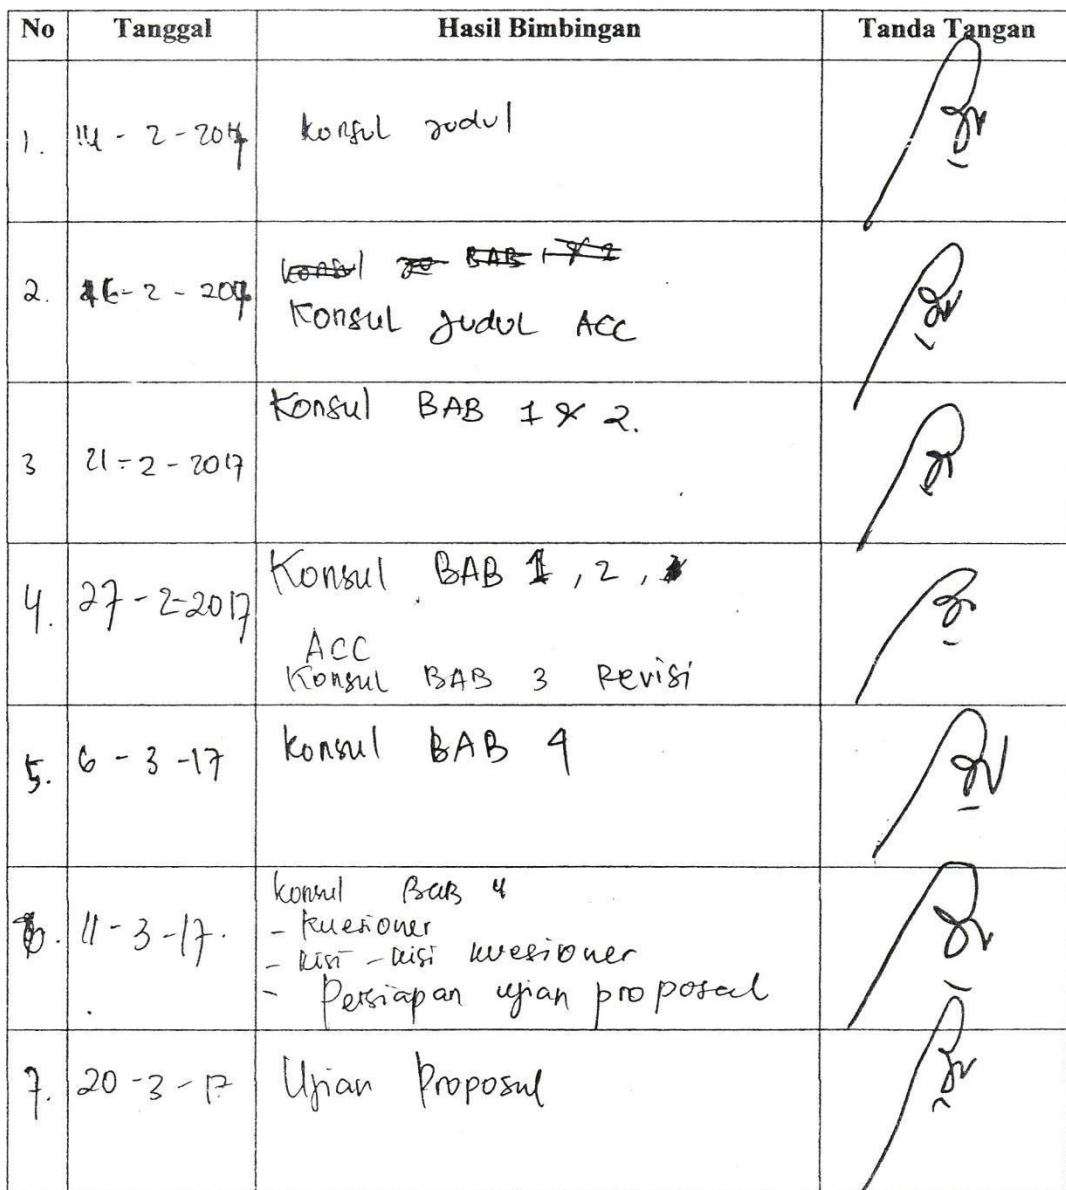 No Tanggal Hasil Bimbingan Tanda Tangan
1. 14 - 2 - 2017 Konsul Judul
Konsul BAB 1 & 2
2. 16 - 2 - 2017 Konsul Judul ACC
Konsul BAB 1 & 2.
3 21 - 2 - 2017
Konsul BAB 1, 2,
4. 27 - 2 - 2017
ACC
Konsul BAB 3 Revisi
5. 6 - 3 - 17 Konsul BAB 4
Konsul BAB 4
6. 11 - 3 - 17. - Kuesioner
- kisi - kisi kuesioner
- Persiapan ujian proposal
7. 20 - 3 - 17 Ujian Proposal